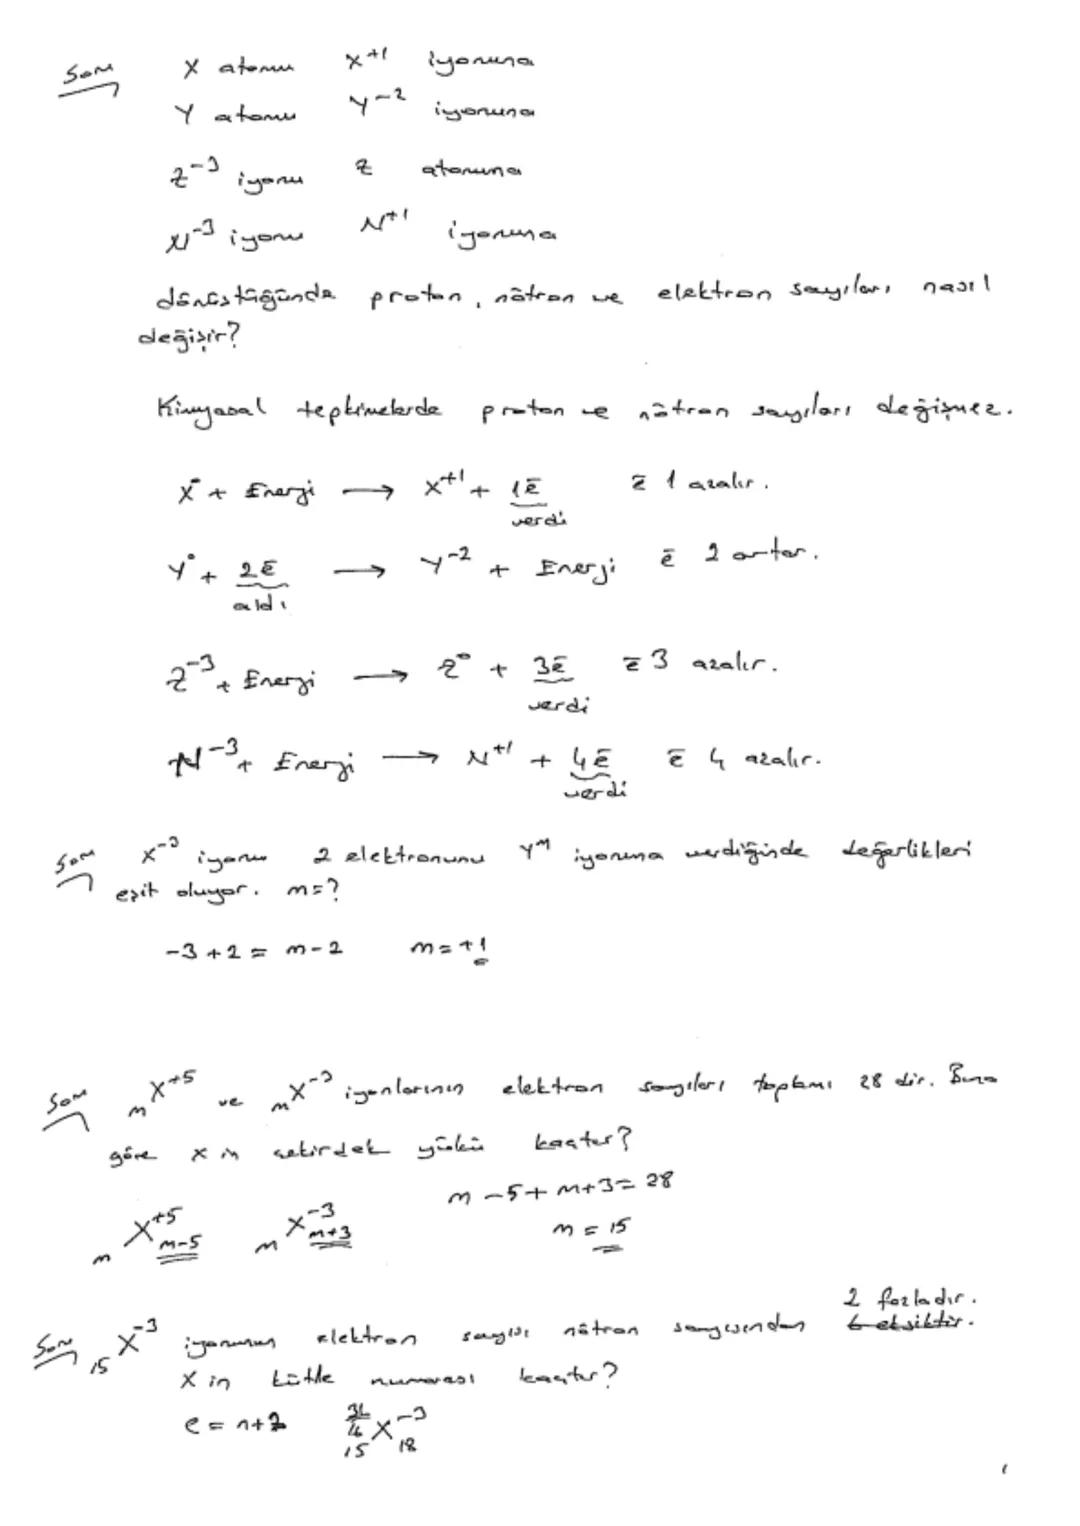 Soru X atomu X⁺¹ iyonuna
Y atomu Y⁻² iyonuna
Z⁻³ iyonu Z atomuna
N⁻³ iyonu N⁺¹ iyonuna
dönüştüğünde proton, nötron ve elektron sayıları nasıl
değişir?
Kimyasal tepkimelerde proton ve nötron sayıları değişmez.
X⁰ + Enerji → X⁺¹ + 1ē ē 1 azalır.
verdi
Y⁰ + 2ē → Y⁻² + Enerji ē 2 artar.
aldı
Z⁻³ + Enerji → Z⁰ + 3ē ē 3 azalır.
verdi
N⁻³ + Enerji → N⁺¹ + 4ē ē 4 azalır.
verdi
Soru X⁻³ iyonu 2 elektronunu Yᵐ iyonuna verdiğinde değerlikleri
eşit oluyor. m=?
-3+2 = m-2 m=+1
Soru ₘX⁺⁵ ve ₘX⁻³ iyonlarının elektron sayıları toplamı 28 dir. Buna
göre X in çekirdek yükü kaçtır?
m-5+m+3=28
ₘX⁺⁵ m-5 ₘX⁻³ m+3 m=15
2 fazladır.
Soru ₁₅X⁻³ iyonunun elektron sayısı nötron sayısından 6 eksiktir.
X in kütle numarası kaçtır?
e = n+2 31 X⁻³
15 18